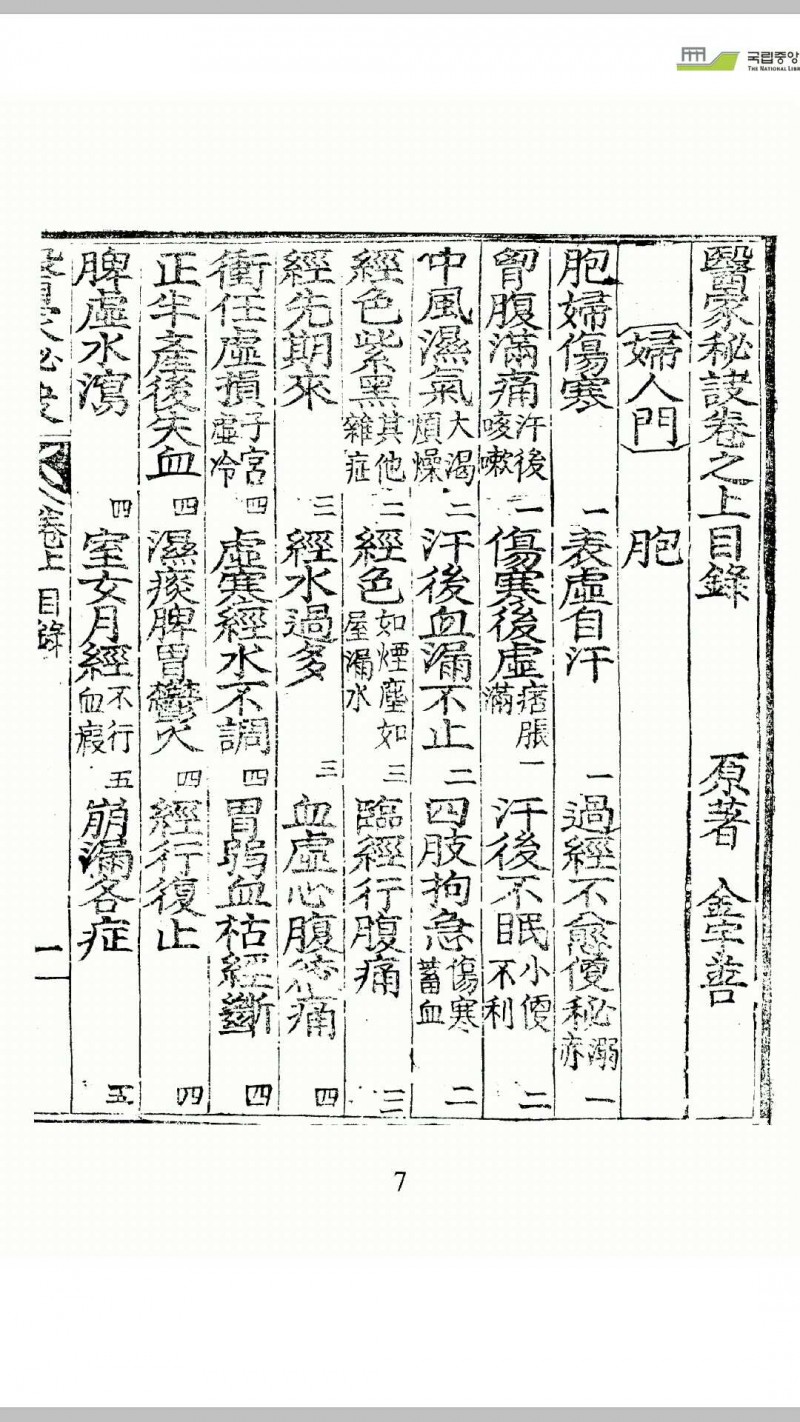 국립중앙
THE NATIONAL LIBR
醫家秘訣卷之上目錄 原著 金宇善
婦人門 胞
胞婦傷寒 一 表虛自汗 一 過經不愈便秘溺赤 一
胷腹滿痛汗後咳嗽 一 傷寒後虛痞脹滿 一 汗後不眠小便不利 二
中風濕氣大渴煩燥 二 汗後血漏不止 二 四肢拘急傷寒蓄血 二
經色紫黑其他雜症 二 經色如煙塵如屋漏水 三 臨經行腹痛 三
經先期來 三 經水過多 三 血虛心腹疼痛 四
衝任虛損子宮虛冷 四 虛寒經水不調 四 胃弱血枯經斷 四
正半產後失血 四 濕痰脾胃鬱火 四 經行復止 四
脾虛水瀉 四 室女月經不行血瘕 五 崩漏各症 五
醫家秘訣 卷上 目錄 二
7